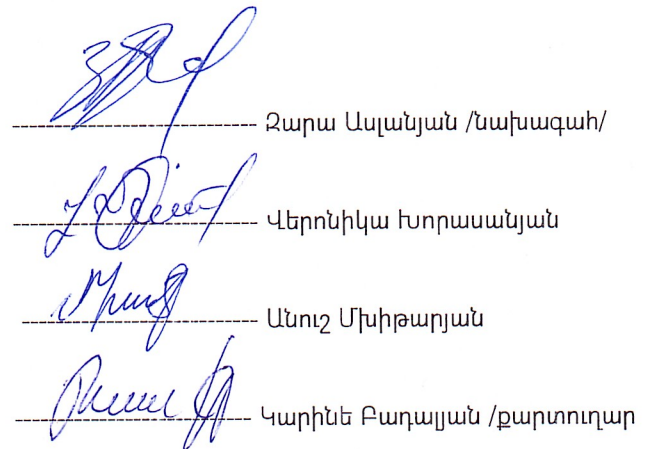 Զարա Ասլանյան /նախագահ/
Վերոնիկա Խորասանյան
Անուշ Մխիթարյան
Կարինե Բադալյան /քարտուղար